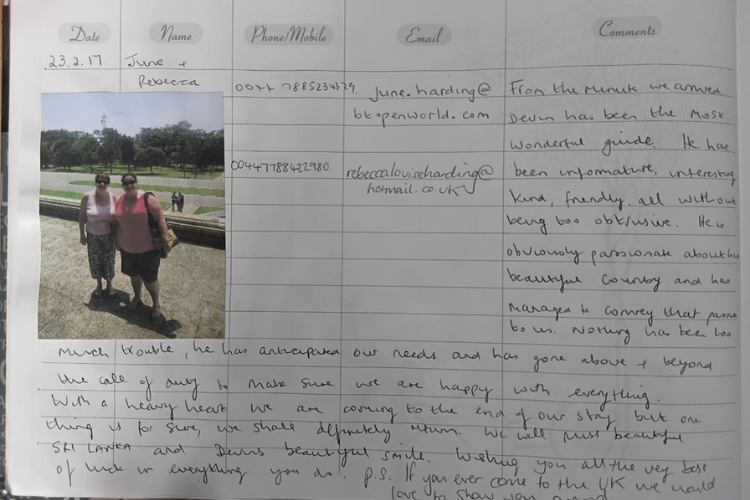 Date Name Phone/Mobile Email Comments
23.2.17 June +
Rebecca
june.harding@
btopenworld.com
00447788422980
rebeccalouiseharding@
hotmail.co.uk
From the minute we arrived
Devin has been the most
wonderful guide. He has
been informative, interesting
kind, friendly, all without
being too obtrusive. He is
obviously passionate about his
beautiful Country and has
managed to convey that
to us. Nothing has been too
much trouble, he has anticipated our needs and has gone above + beyond
the call of duty to make sure we are happy with everything.
With a heavy heart we are coming to the end of our stay but one
thing is for sure, we shall definitely return. We will miss beautiful
SRI LANKA and Devins beautiful smile. Wishing you all the very best
of luck in everything you do. p.s. If you ever come to the UK we would
love to show you